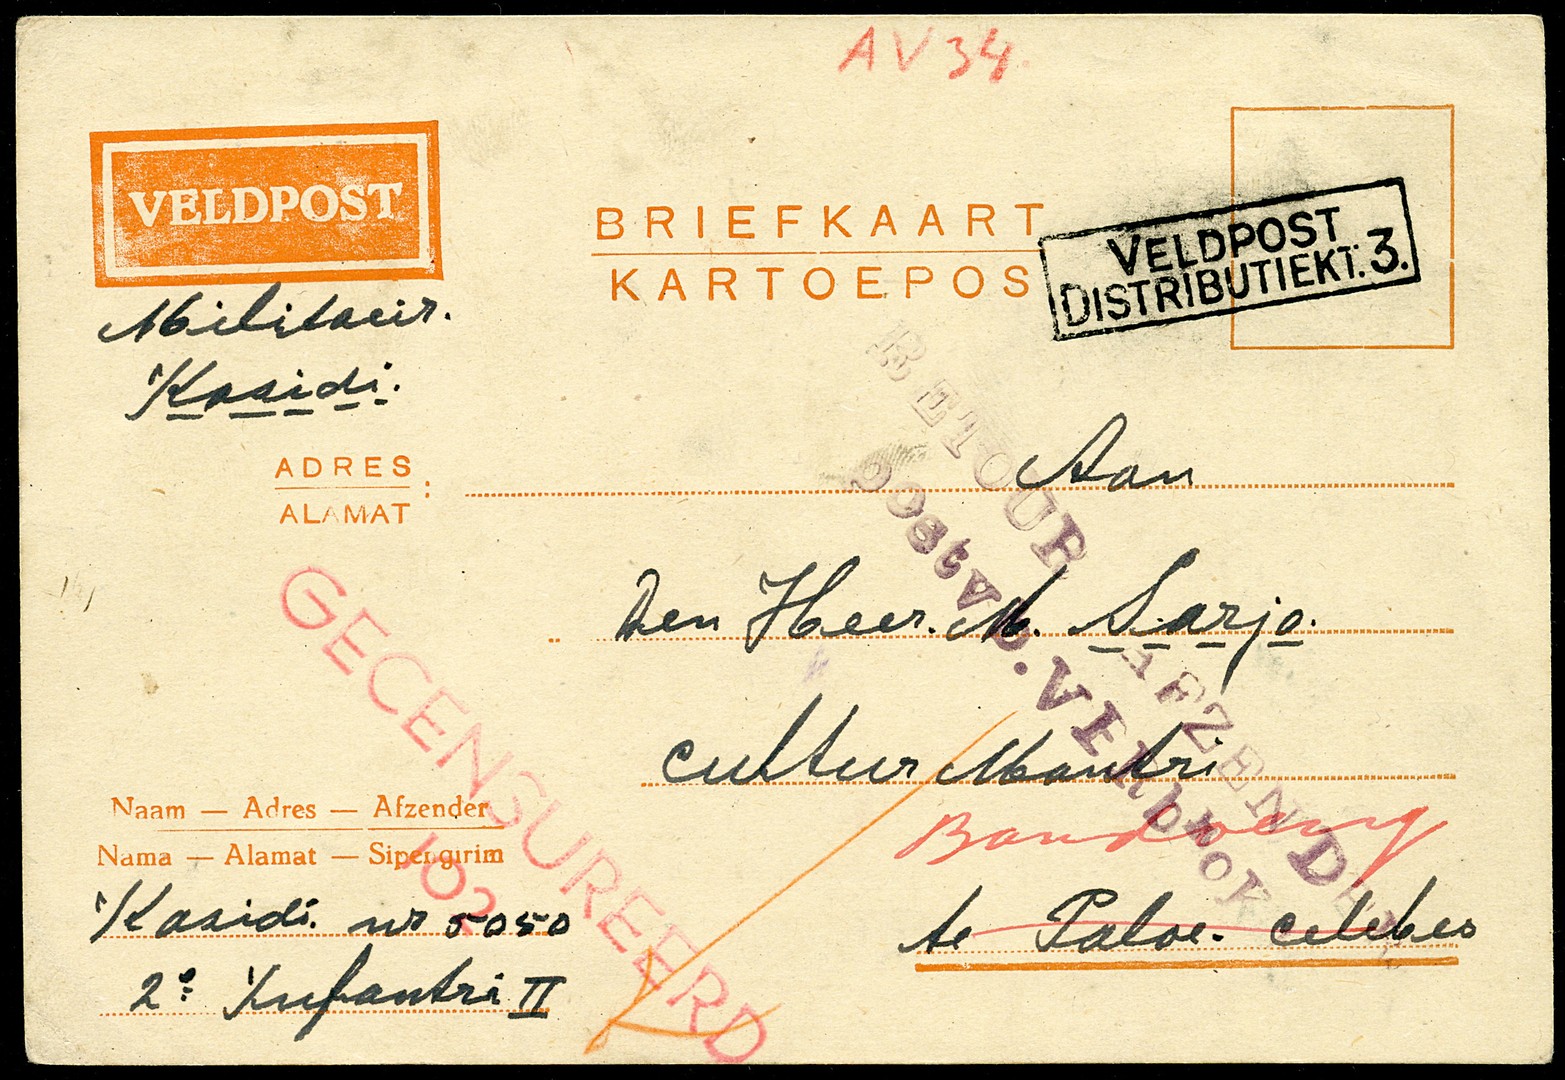 AV 34.
VELDPOST
BRIEFKAART
KARTOEPOS
VELDPOST
DISTRIBUTIEKT. 3.
Militair.
Kasidi.
ADRES
ALAMAT :
RETOUR AFZENDER
Postv. VERBROK
Aan
Den Heer. M. Sarjo.
cultur Mantri
Bandoeng
te Paloe. celebes
GECENSUREERD
102
Naam — Adres — Afzender
Nama — Alamat — Sipengirim
Kasidi. nr 5050
2e Infantri II